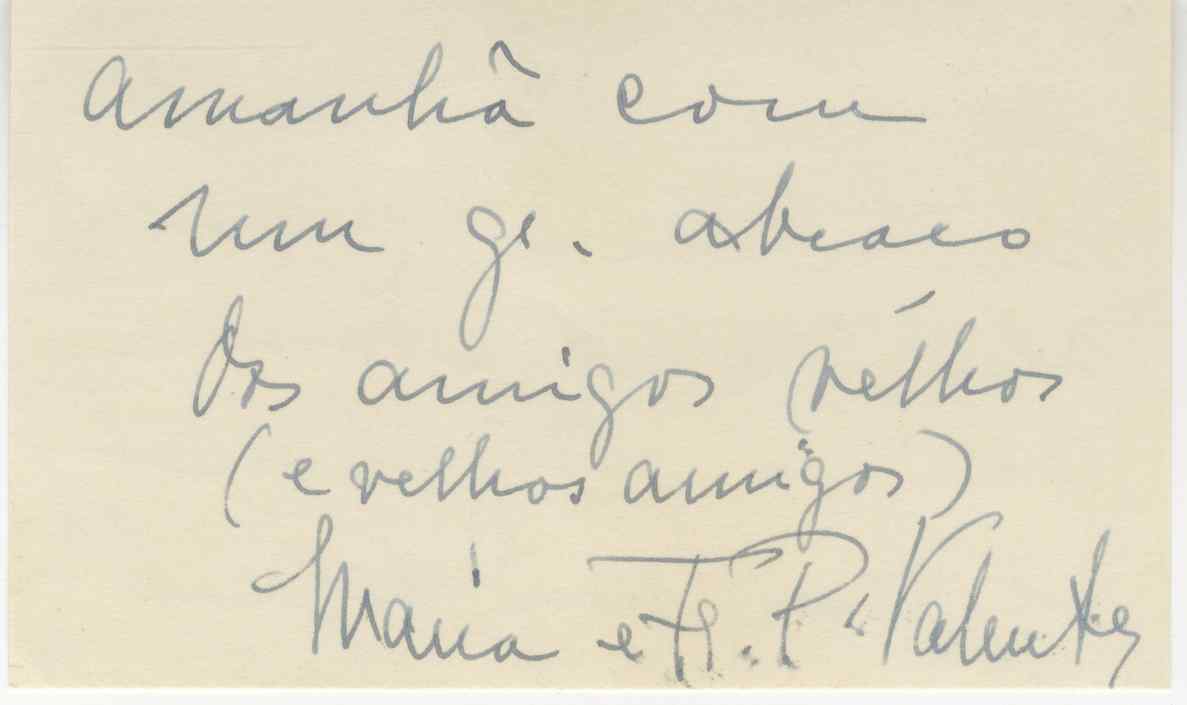 amanhã com
um gr. abraço
dos amigos vélhos
(e velhos amigos)
Maria e F. P. Valente